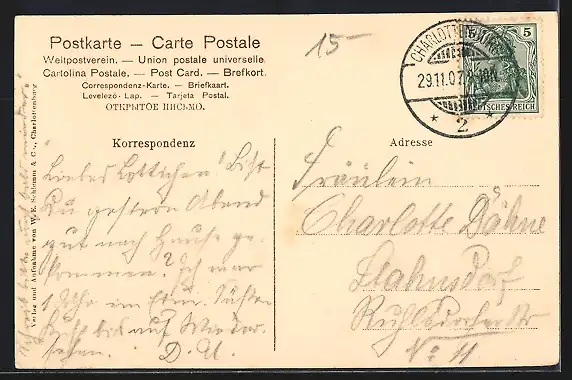 Postkarte — Carte Postale
Weltpostverein. — Union postale universelle.
Cartolina Postale. — Post Card. — Brefkort.
Correspondenz-Karte. — Briefkaart.
Levelező-Lap. — Tarjeta Postal.
ОТКРЫТОЕ ПИСЬМО.
15-
CHARLOTTENBURG
29.11.07.
* 2 *
5
DEUTSCHES REICH
Korrespondenz
Liebes Lottchen! Bist
Du gestern Abend
gut nach Hause ge-
kommen? Ich war
1 Uhr im
bis auf Wieder-
sehen. D. U.
Verlag und Aufnahme von W. E. Schlemm & Co., Charlottenburg
Adresse
Fräulein
Charlotte Dähne
Stahnsdorf
Ruhlsdorfer Str
No 11